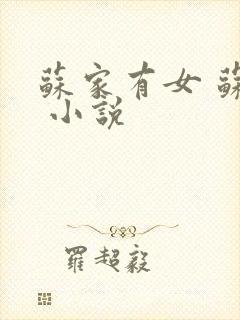 蘇家有女 蘇
小說
羅超毅